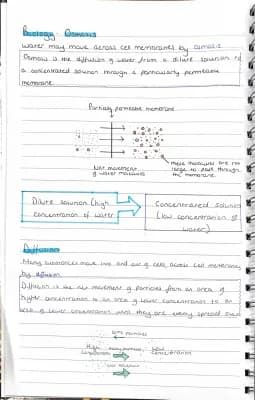 Biology - Osmosis
Water may move across cell membranes by osmosis.
Osmosis is the diffusion of water from a dilute solution to
a concentrated solution through a partially permeable
membrane.
Partially permeable membrane
Net movement
of water molecules
These molecules are too
large to pass through
the membrane.
Dilute solution (high
concentration of water)
Concentrated solution
(low concentration of
water)
Diffusion
Many substances move into and out of cells, across cell membranes
by diffusion.
Diffusion is the net movement of particles from an area of
higher concentration to an area of lower concentration
they are evenly spread
particles
High
concentration
Low
concentration